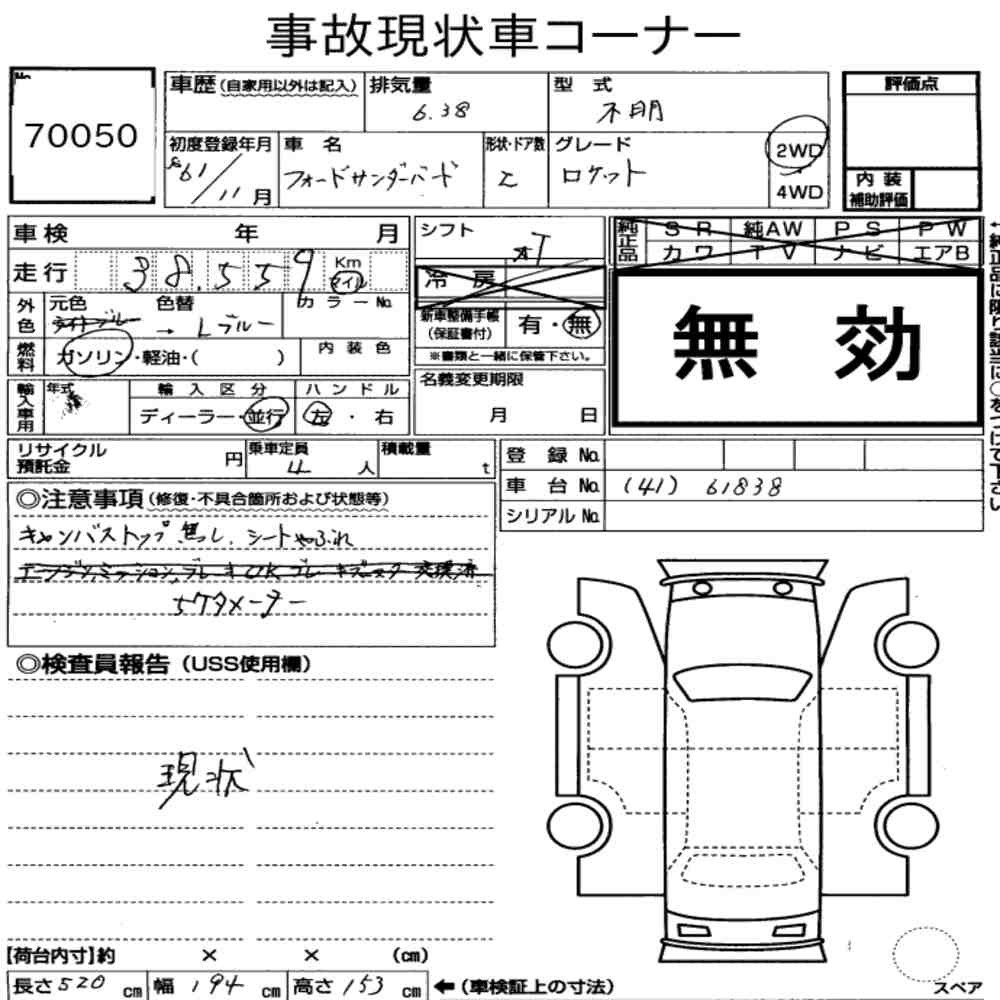 事故現状車コーナー
No.
70050
車歴 (自家用以外は記入)
排気量
6.38
型式
不明
評価点
初度登録年月
S61/11月
車名
フォードサンダーバード
形状・ドア数
2
グレード
ロケット
2WD
4WD
内装
補助評価
車検 年 月
シフト
AT
純正品
S R 純AW P S P W
カワ T V ナビ エアB
走行 38.559 Km マイル
冷房
外色
元色
ライトブルー
色替
→ Lブルー
カラーNo.
新車整備手帳
(保証書付)
有・無
※書類と一緒に保管下さい。
無効
燃料
ガソリン・軽油・( )
内装色
名義変更期限
月 日
輸入車用
年式
輸入区分
ディーラー・並行
ハンドル
左・右
リサイクル
預託金
円
乗車定員
4人
積載量
t
登録No.
車台No. (41) 61838
シリアルNo.
◎注意事項 (修復・不具合箇所および状態等)
キャンバストップ無し、シートやぶれ
5ケタメーター
◎検査員報告 (USS使用欄)
現状
【荷台内寸】約 × × (cm)
長さ520cm 幅194cm 高さ153cm ←(車検証上の寸法)
スペア